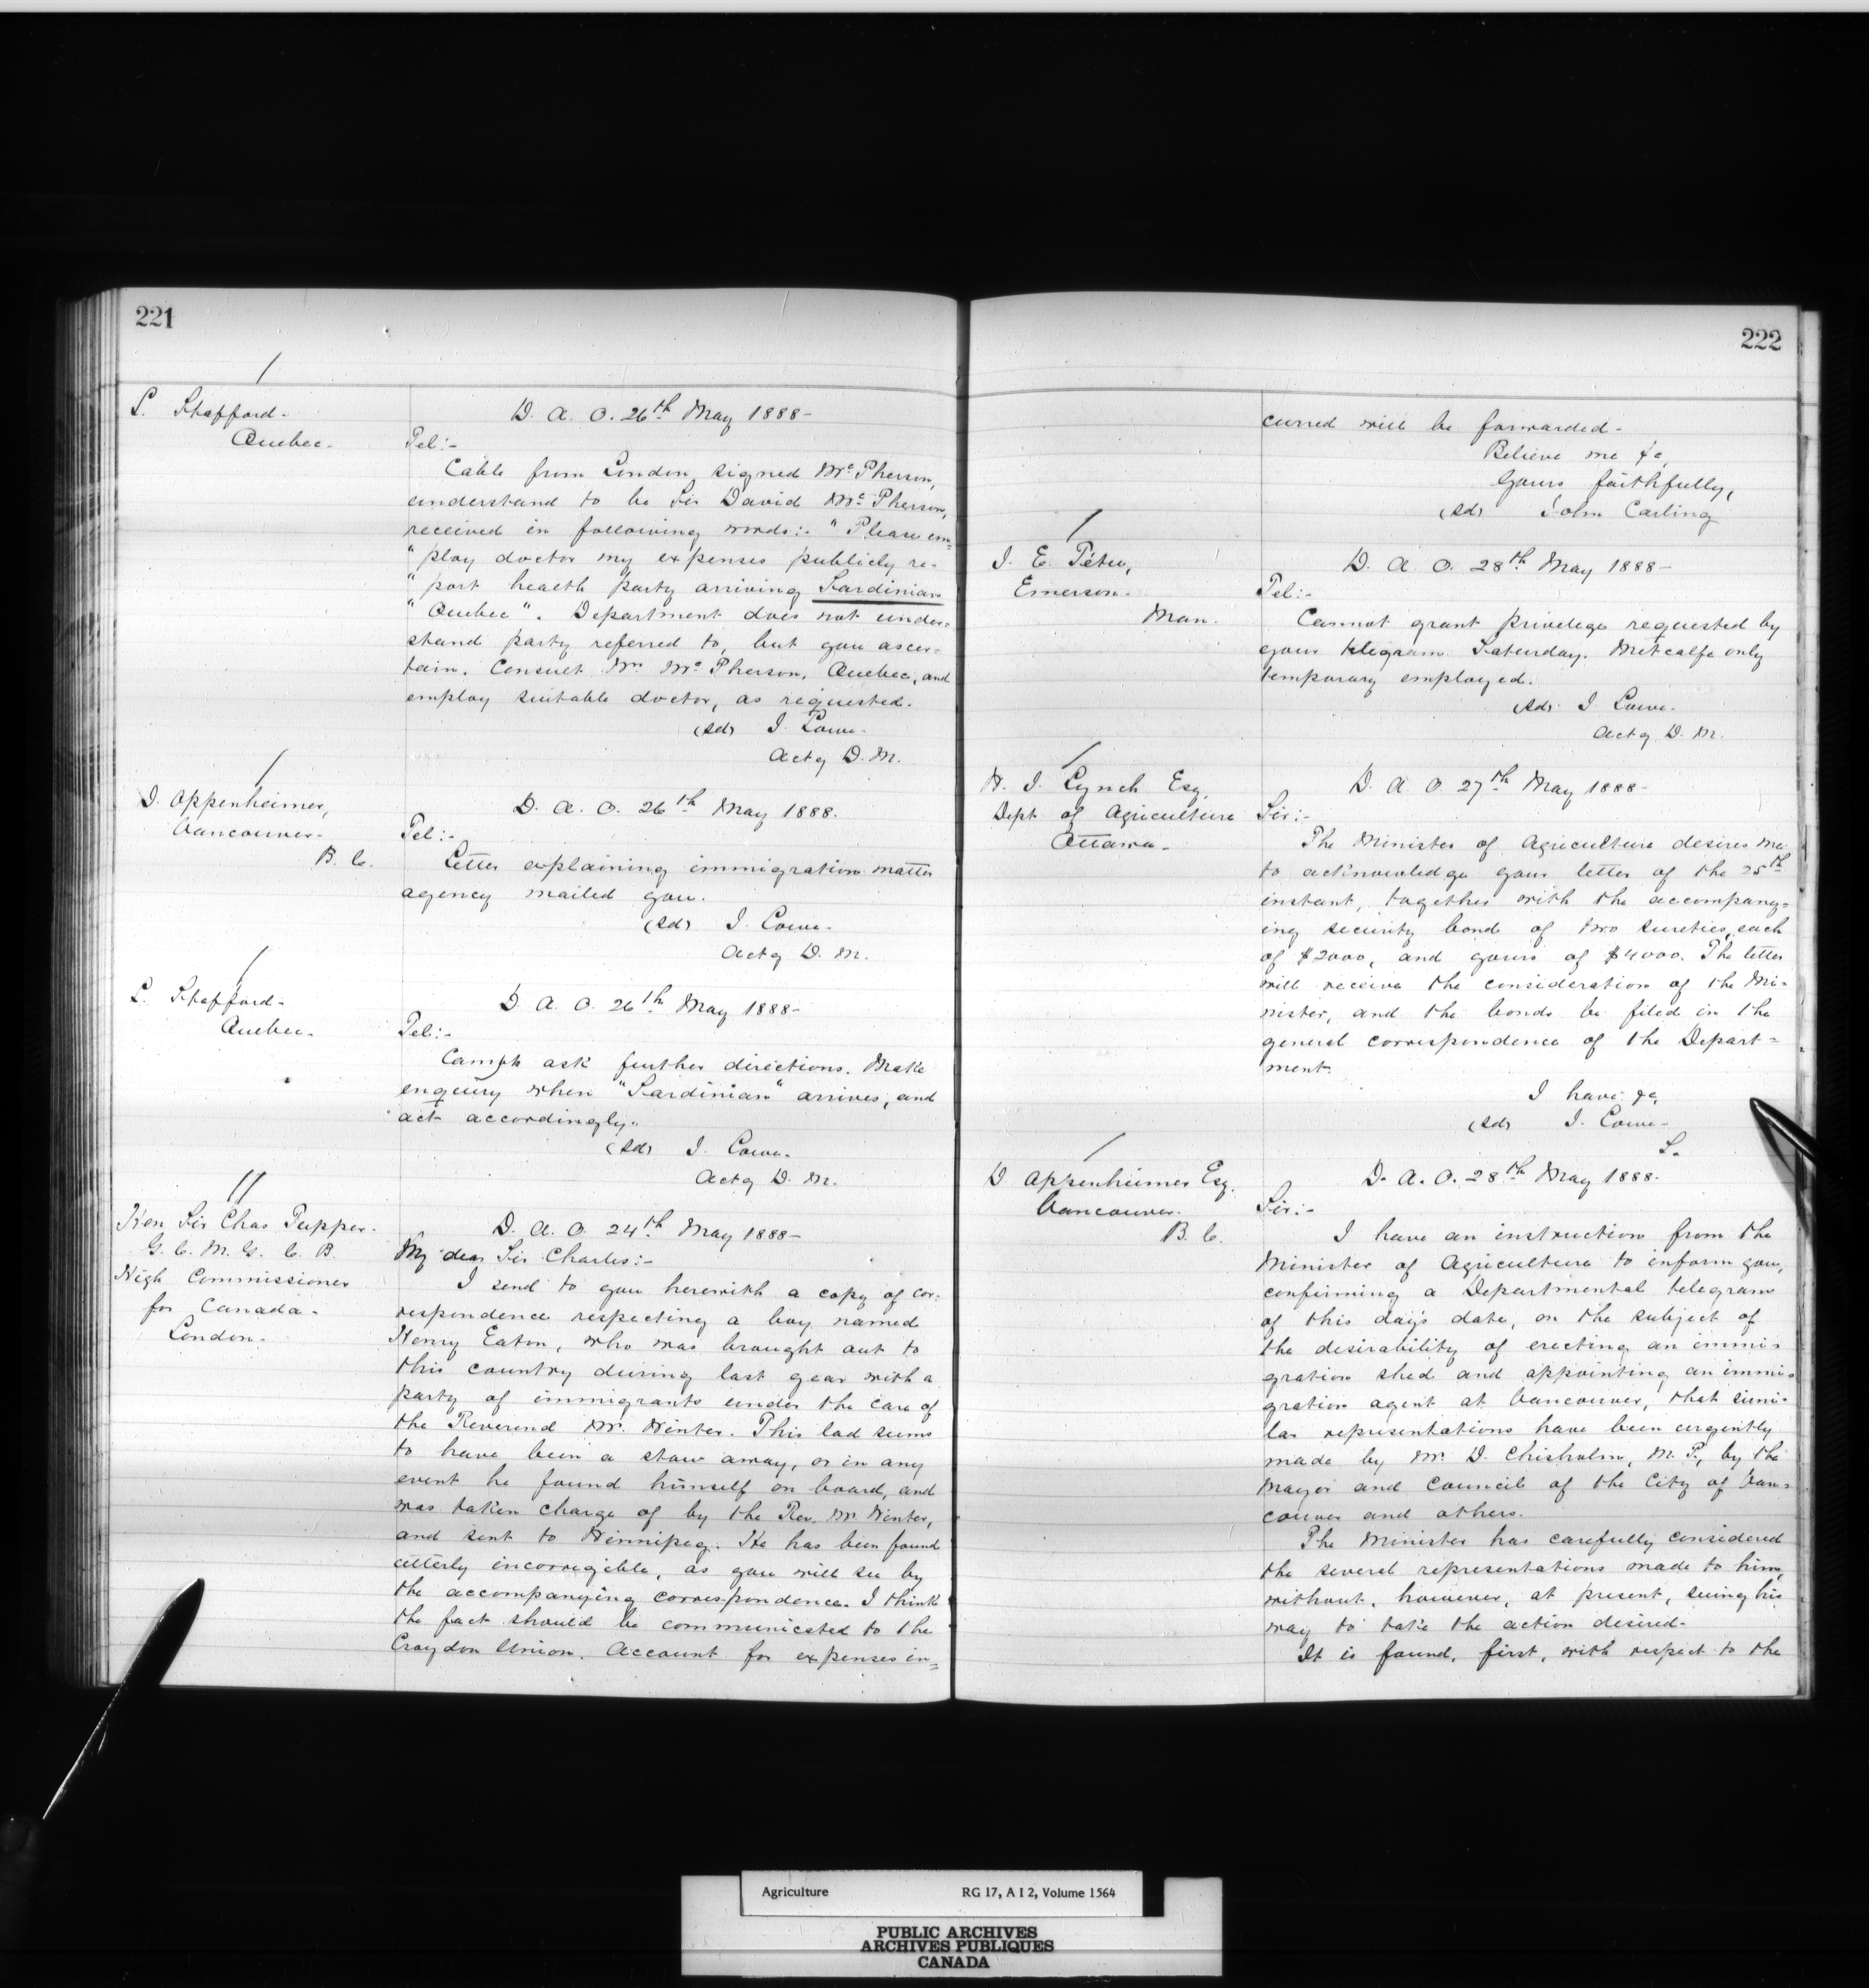 221
L. Stafford-
Quebec-
D. A. O. 26th May 1888-
Tel:-
Cable from London signed McPherson,
understand to be Sir David McPherson,
received in following words:- "Please em=
"ploy doctor my expenses publicly re-
"port health party arriving Sardinian
"Quebec". Department does not under=
stand party referred to, but you ascer=
tain. Consult Mr McPherson, Quebec, and
employ suitable doctor, as requested.
(sd) J. Lowe-
Actg D. M.
D. Oppenheimer,
Vancouver-
B. C.
D. A. O. 26th May 1888.
Tel:-
Letter explaining immigration matter
agency mailed you.
(sd) J. Lowe-
Actg D. M.
L. Stafford-
Quebec-
D. A. O. 26th May 1888-
Tel:-
ask further directions. Make
enquiry when "Sardinian" arrives, and
act accordingly.
(sd) J. Lowe-
Actg D. M.
Hon Sir Chas Tupper-
G. C. M. G. C. B.
High Commissioner
for Canada-
London-
D. A. O. 24th May 1888-
My dear Sir Charles:-
I send to you herewith a copy of cor=
respondence respecting a boy named
Henry Eaton, who was brought out to
this country during last year with a
party of immigrants under the care of
the Reverend Mr. Winter. This lad seems
to have been a stow away, or in any
event he found himself on board, and
was taken charge of by the Rev. Mr Winter,
and sent to Winnipeg. He has been found
utterly incorrigible, as you will see by
the accompanying correspondence. I think
the fact should be communicated to the
Croydon Union. Account for expenses in=
222
curred will be forwarded-
Believe me &c,
Yours faithfully,
(sd) John Carling
J. E. Tétu,
Emerson-
Man.
D. A. O. 28th May 1888-
Tel:-
Cannot grant privilege requested by
your telegram Saturday. Metcalfe only
temporary employed.
(sd) J. Lowe-
Actg D. M.
H. J. Lynch Esq,
Dept of Agriculture
Ottawa-
D. A. O 27th May 1888-
Sir:-
The Minister of Agriculture desires me
to acknowledge your letter of the 25th
instant, together with the accompany=
ing security bond of two sureties, each
of $2000, and yours of $4000. The letter
will receive the consideration of the Mi-
nister, and the bonds be filed in the
general correspondence of the Depart=
ment.
I have &c,
(sd) J. Lowe-
S.
D Oppenheimer Esq.
Vancouver-
B. C.
D. A. O. 28th May 1888-
Sir:-
I have an instruction from the
Minister of Agriculture to inform you,
confirming a Departmental telegram
of this day's date, on the subject of
the desirability of erecting an immi-
gration shed and appointing an immi-
gration agent at Vancouver, that simi-
lar representations have been urgently
made by Mr D. Chisholm, M. P., by the
Mayor and Council of the City of Van=
couver and others.
The Minister has carefully considered
the several representations made to him,
without, however, at present, seeing his
way to take the action desired-
It is found, first, with respect to the
Agriculture RG 17, A I 2, Volume 1564
PUBLIC ARCHIVES
ARCHIVES PUBLIQUES
CANADA